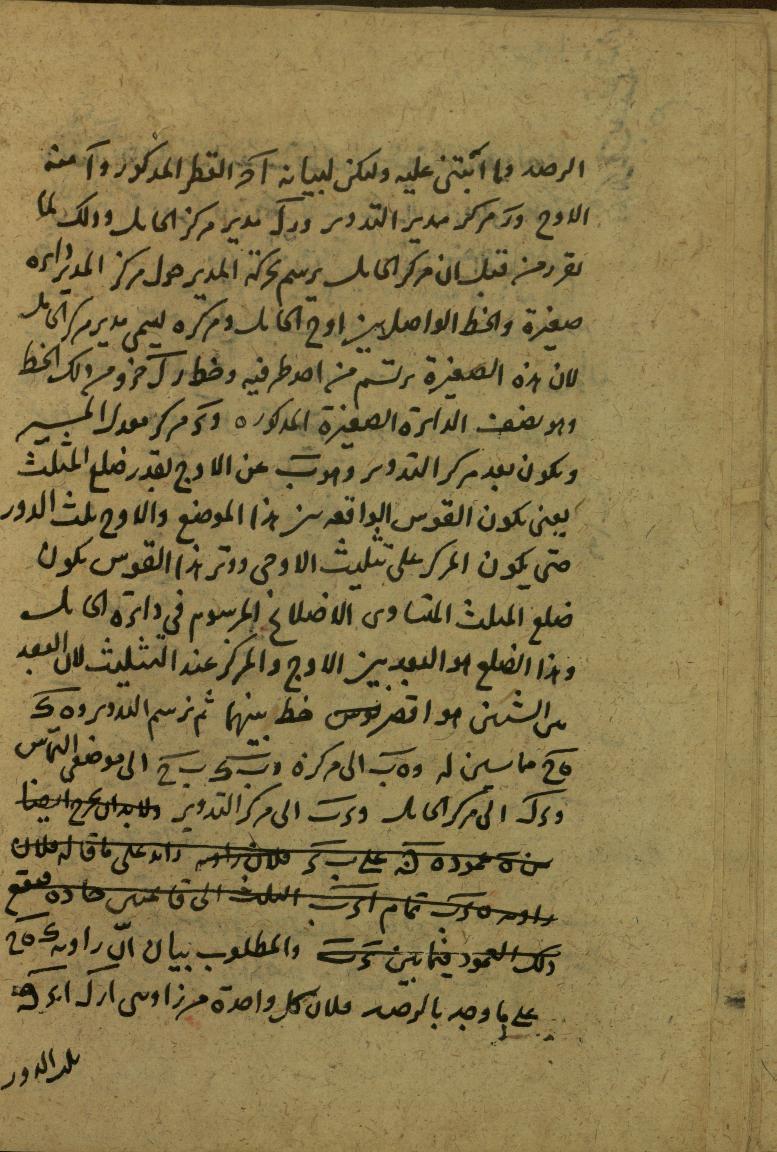 الرصد وما اثبتنى عليه وليكن لبيانه آه القطر المذكور وآ منه
الاوج ور مركز مدير التدوير ورك مدير مركز الحامل وذلك لما
تقرر من قبل ان مركز الحامل يرسم بحركة المدير حول مركز المدير دايرة
صغيرة والخط الواصل بين اوج الحامل ومركزه يسمى مدير مركز الحامل
لان هذه الصغيرة ترتسم من احد طرفيه وخط رك جزء من ذلك الخط
وهو نصف الدائرة الصغيرة المذكورة وء مركز معدل المسير
ويكون بعد مركز التدوير وهو ب عن الاوج بقدر ضلع المثلث
يعنى يكون القوس الواقعه بين هذا الموضع والاوج ثلث الدور
حتى يكون المركز على تثليث الاوجى ووتر هذا القوس يكون
ضلع المثلث المتساوى الاضلاع المرسوم فى دائرة الحامل
وهذا الضلع هو البعد بين الاوج والمركز عند التثليث لان البعد
بين الشيئين هو اقصر خط بينهما ثم نرسم التدوير و ه ى
ه ح مماسين له و ه ب الى مركزه و ب ى ب ح الى موضعى التماس
و ء ك الى مركز الحامل و ء ب الى مركز التدوير ولابد ان يخرج ايضا
من ه عمود ه ق على ب ء فلان زاوية زايد على ما قاله فلان
زاويه ه ء ب تمام ا ء ب الثلث الى قائمتين حادة فيقع
ذلك العمود فيما بين ء ب والمطلوب بيان ان زاوية ى ه ح
على ما وجد بالرصد فلان كل واحدة من زاويتى ا ر ك ا ء ب
ثلث الدور